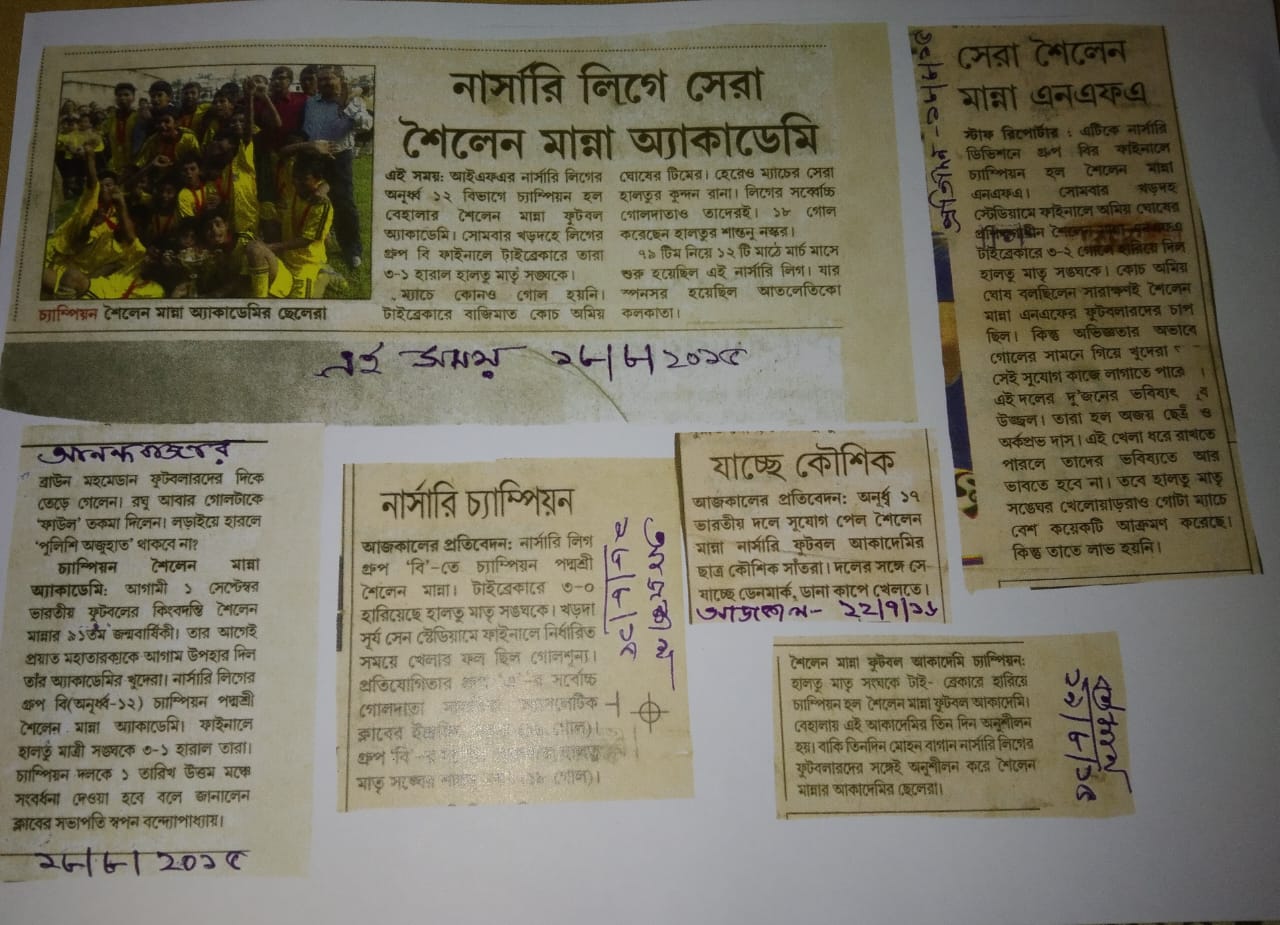 নার্সারি লিগে সেরা
শৈলেন মান্না অ্যাকাডেমি
এই সময়: আইএফএর নার্সারি লিগের
অনূর্ধ্ব ১২ বিভাগে চ্যাম্পিয়ন হল
বেহালার শৈলেন মান্না ফুটবল
অ্যাকাডেমি। সোমবার খড়দহে লিগের
গ্রুপ বি ফাইনালে টাইব্রেকারে তারা
৩-১ হারাল হালতু মাতৃ সঙ্ঘকে।
ম্যাচে কোনও গোল হয়নি।
টাইব্রেকারে বাজিমাত কোচ অমিয়
ঘোষের টিমের। হেরেও ম্যাচের সেরা
হালতুর কুন্দন রানা। লিগের সর্বোচ্চ
গোলদাতাও তাদেরই। ১৮ গোল
করেছেন হালতুর শান্তনু নস্কর।
৭৯ টিম নিয়ে ১২ টি মাঠে মার্চ মাসে
শুরু হয়েছিল এই নার্সারি লিগ। যার
স্পনসর হয়েছিল আতলেতিকো
কলকাতা।
চ্যাম্পিয়ন শৈলেন মান্না অ্যাকাডেমির ছেলেরা
এই সময় ১৮/৮/২০১৫
সেরা শৈলেন
মান্না এনএফএ
স্টাফ রিপোর্টার : এটিকে নার্সারি
ডিভিশনে গ্রুপ বির ফাইনালে
চ্যাম্পিয়ন হল শৈলেন মান্না
এনএফএ। সোমবার খড়দহ
স্টেডিয়ামে ফাইনালে অমিয় ঘোষের
প্রশিক্ষণাধীন শৈলেন মান্না এনএফএ
টাইব্রেকারে ৩-২ গোলে হারিয়ে দিল
হালতু মাতৃ সঙ্ঘকে। কোচ অমিয়
ঘোষ বলছিলেন সারাক্ষণই শৈলেন
মান্না এনএফের ফুটবলারদের চাপ
ছিল। কিন্তু অভিজ্ঞতার অভাবে
গোলের সামনে গিয়ে খুদেরা
সেই সুযোগ কাজে লাগাতে পারে
এই দলের দু'জনের ভবিষ্যৎ
উজ্জ্বল। তারা হল অজয় ছেত্রী ও
অর্কপ্রভ দাস। এই খেলা ধরে রাখতে
পারলে তাদের ভবিষ্যতে আর
ভাবতে হবে না। তবে হালতু মাতৃ
সঙ্ঘের খেলোয়াড়রাও গোটা ম্যাচে
বেশ কয়েকটি আক্রমণ করেছে।
কিন্তু তাতে লাভ হয়নি।
প্রতিদিন - ১৮/৮/১৫
আনন্দবাজার
ব্রাউন মহমেডান ফুটবলারদের দিকে
তেড়ে গেলেন। রঘু আবার গোলটাকে
'ফাউল' তকমা দিলেন। লড়াইয়ে হারলে
'পুলিশি অজুহাত' থাকবে না?
চ্যাম্পিয়ন শৈলেন মান্না
অ্যাকাডেমি: আগামী ১ সেপ্টেম্বর
ভারতীয় ফুটবলের কিংবদন্তি শৈলেন
মান্নার ৯১তম জন্মবার্ষিকী। তার আগেই
প্রয়াত মহাতারকাকে আগাম উপহার দিল
তাঁর অ্যাকাডেমির খুদেরা। নার্সারি লিগের
গ্রুপ বি(অনূর্ধ্ব-১২) চ্যাম্পিয়ন পদ্মশ্রী
শৈলেন মান্না অ্যাকাডেমি। ফাইনালে
হালতু মাত্রী সঙ্ঘকে ৩-১ হারাল তারা।
চ্যাম্পিয়ন দলকে ১ তারিখ উত্তম মঞ্চে
সংবর্ধনা দেওয়া হবে বলে জানালেন
ক্লাবের সভাপতি স্বপন বন্দ্যোপাধ্যায়।
১৮/৮/২০১৫
নার্সারি চ্যাম্পিয়ন
আজকালের প্রতিবেদন: নার্সারি লিগ
গ্রুপ 'বি'-তে চ্যাম্পিয়ন পদ্মশ্রী
শৈলেন মান্না। টাইব্রেকারে ৩-০
হারিয়েছে হালতু মাতৃ সঙ্ঘকে। খড়দা
সূর্য সেন স্টেডিয়ামে ফাইনালে নির্ধারিত
সময়ে খেলার ফল ছিল গোলশূন্য।
প্রতিযোগিতার গ্রুপ 'এ'-র সর্বোচ্চ
গোলদাতা
ক্লাবের গোল)।
গ্রুপ 'বি'-র
মাতৃ সঙ্ঘের গোল)।
যাচ্ছে কৌশিক
আজকালের প্রতিবেদন: অনূর্ধ্ব ১৭
ভারতীয় দলে সুযোগ পেল শৈলেন
মান্না নার্সারি ফুটবল আকাদেমির
ছাত্র কৌশিক সাঁতরা। দলের সঙ্গে সে
যাচ্ছে ডেনমার্ক, ডানা কাপে খেলতে।
আজকাল- ২২/৭/১৬
শৈলেন মান্না ফুটবল আকাদেমি চ্যাম্পিয়ন:
হালতু মাতৃ সংঘকে টাই- ব্রেকারে হারিয়ে
চ্যাম্পিয়ন হল শৈলেন মান্না ফুটবল আকাদেমি।
বেহালায় এই আকাদেমির তিন দিন অনুশীলন
হয়। বাকি তিনদিন মোহন বাগান নার্সারি লিগের
ফুটবলারদের সঙ্গেই অনুশীলন করে শৈলেন
মান্নার আকাদেমির ছেলেরা।